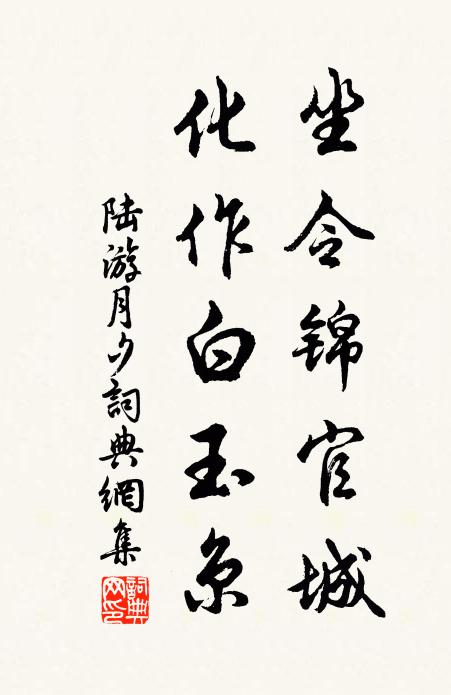 坐令锦官城
化作白玉京
陆游月夕詞典網集
詞典网印